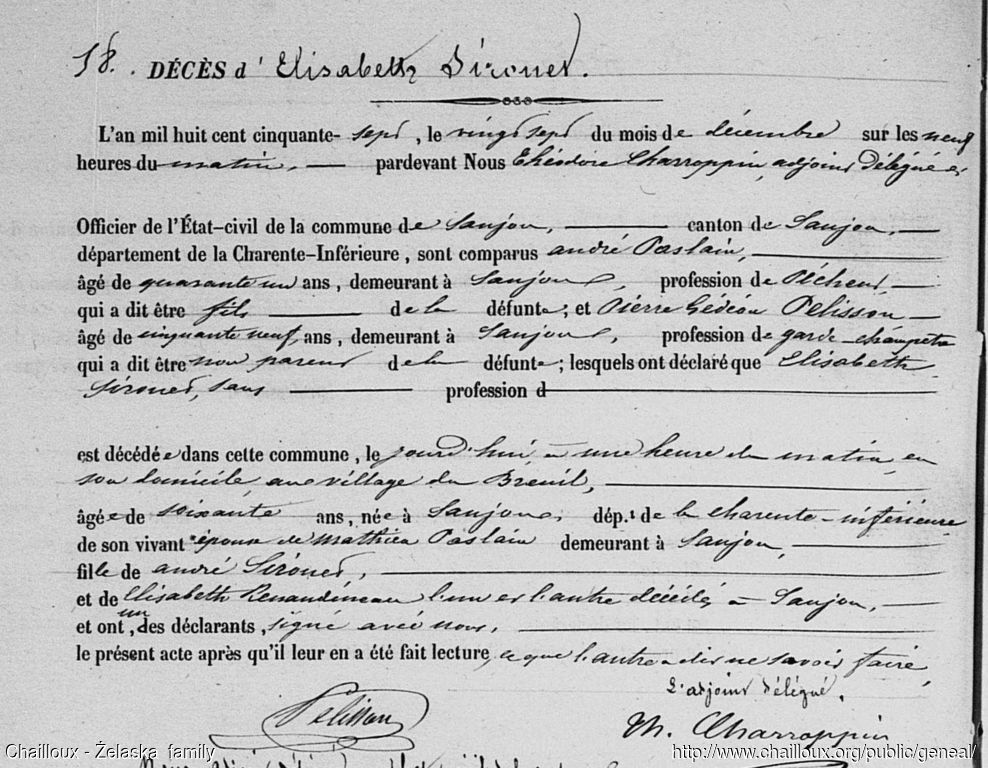 58. DÉCÈS d'Elisabeth Sironet.
L'an mil huit cent cinquante-sept, le vingt sept du mois de décembre sur les neuf
heures du matin, pardevant Nous Théodore Charroppin, adjoint délégué et
Officier de l'État-civil de la commune de Saujon, canton de Saujon,
département de la Charente-Inférieure, sont comparus andré Paslain,
âgé de quarante un ans, demeurant à Saujon, profession de Pécheur,
qui a dit être fils de la défunte; et Pierre Gédéon Pelisson
âgé de cinquante neuf ans, demeurant à Saujon, profession de garde-champetre
qui a dit être non parent de la défunte; lesquels ont déclaré que Elisabeth
Sironet, sans profession d
est décédée dans cette commune, le jourd'hui à une heure du matin, en
son domicile, au village du Breuil,
âgée de soixante ans, née à Saujon, dép.t de la charente-inférieure
de son vivant épouse de Mathieu Paslain demeurant à Saujon,
fille de andré Sironet,
et de Elisabeth Renaudineau l'un et l'autre décédés à Saujon,
et ont, un des déclarants, signé avec nous,
le présent acte après qu'il leur en a été fait lecture, ce que l'autre a dit ne savoir faire,
L'adjoint délégué,
Pelisson Th. Charroppin
Chailloux - Želaska family http://www.chailloux.org/public/geneal/